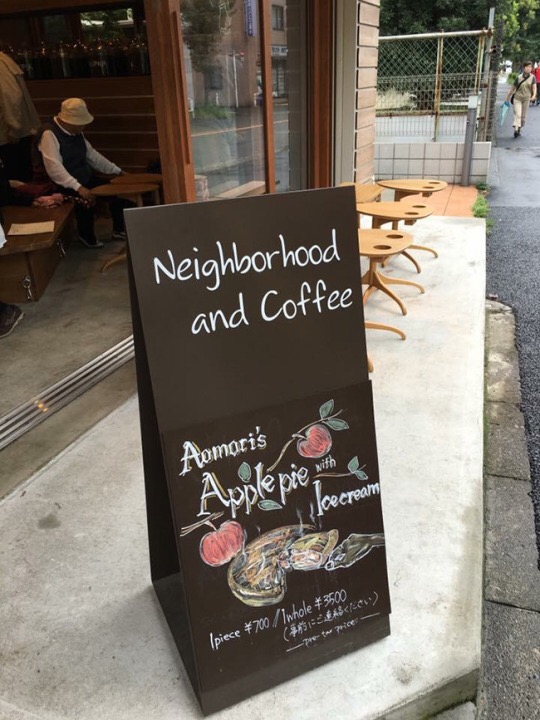 Neighborhood
and Coffee
Aomori's
Apple pie with
Icecream
1piece ¥700 // 1whole ¥3500
(事前にご連絡ください)
-pre tax price-